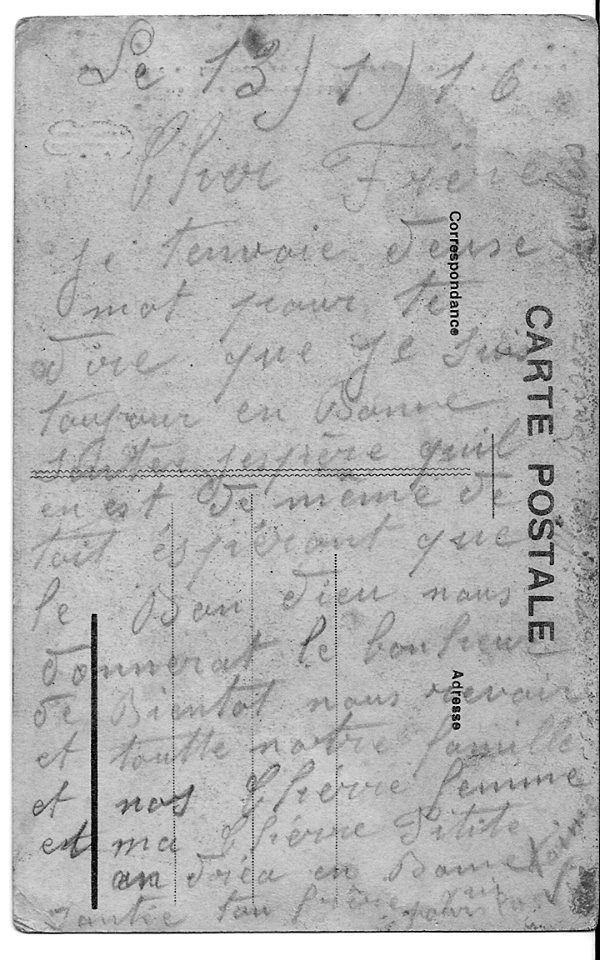 Le 13) 1) 16
Cher Frère
Je tenvoie deuse
mot pour te
dire que je suis
toujour en Bonne
santes jespère quil
en est de même de
toit éspèrant que
le Bon dieu nous
donnerat le bonheur
de Bientot nous revoir
et toutte notre famille
et nos Chérre femme
et ma Chérre Petite
en Bonne
Santie ton frère pour
Correspondance
CARTE POSTALE
Adresse